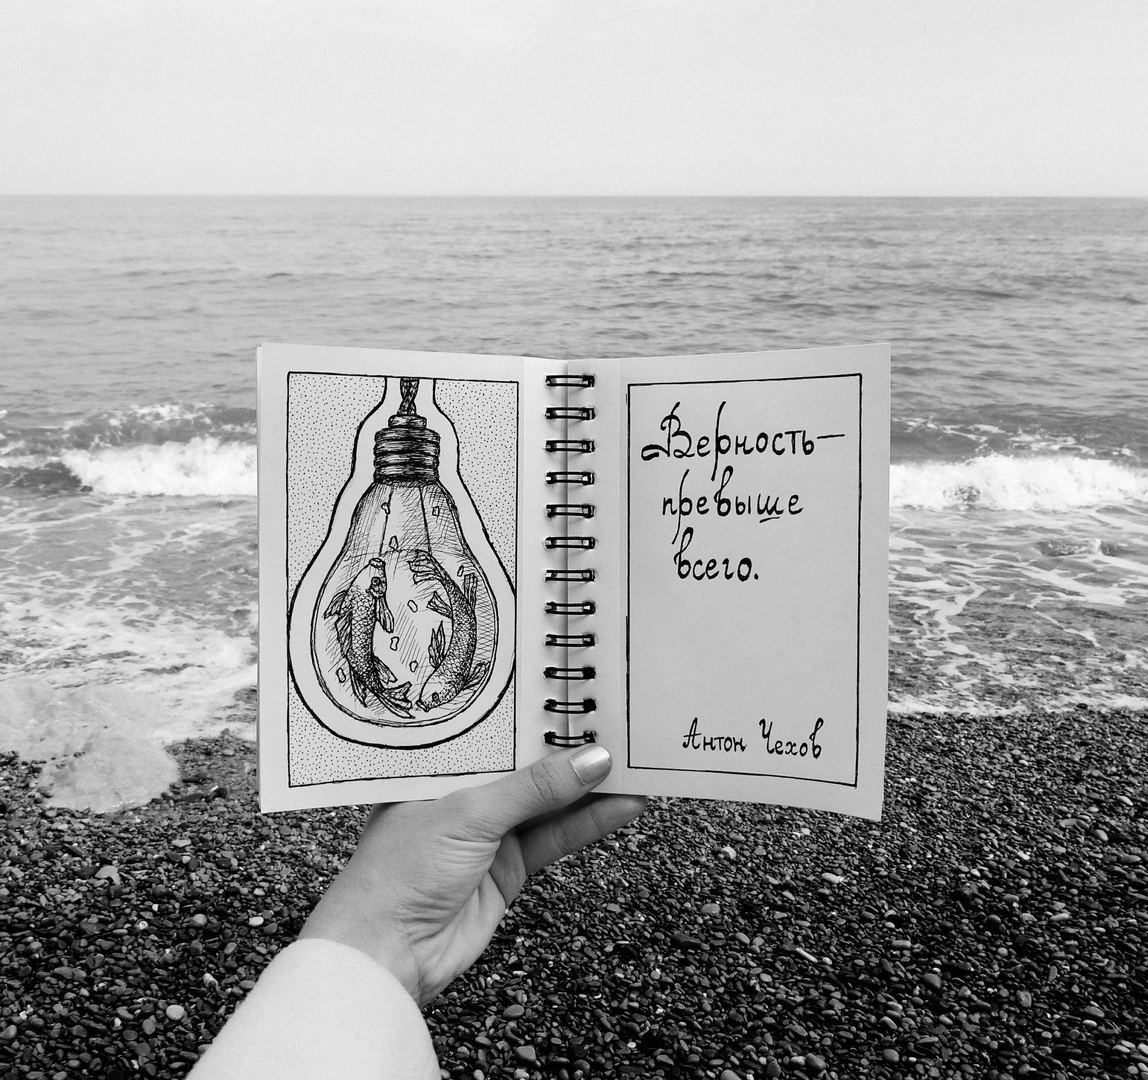 Верность—
превыше
всего.
Антон Чехов